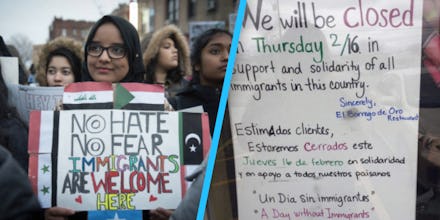 NO HATE
NO FEAR
IMMIGRANTS
ARE WELCOME
HERE
We will be closed
on Thursday 2/16 in
support and solidarity of all
immigrants in this country.
Sincerely,
El Borrego de Oro
Restaurant
Estimados clientes,
Estaremos Cerrados este
Jueves 16 de febrero en solidaridad
y en apoyo a todos nuestros paisanos
"Un Dia sin immigrantes"
"A Day without Immigrants